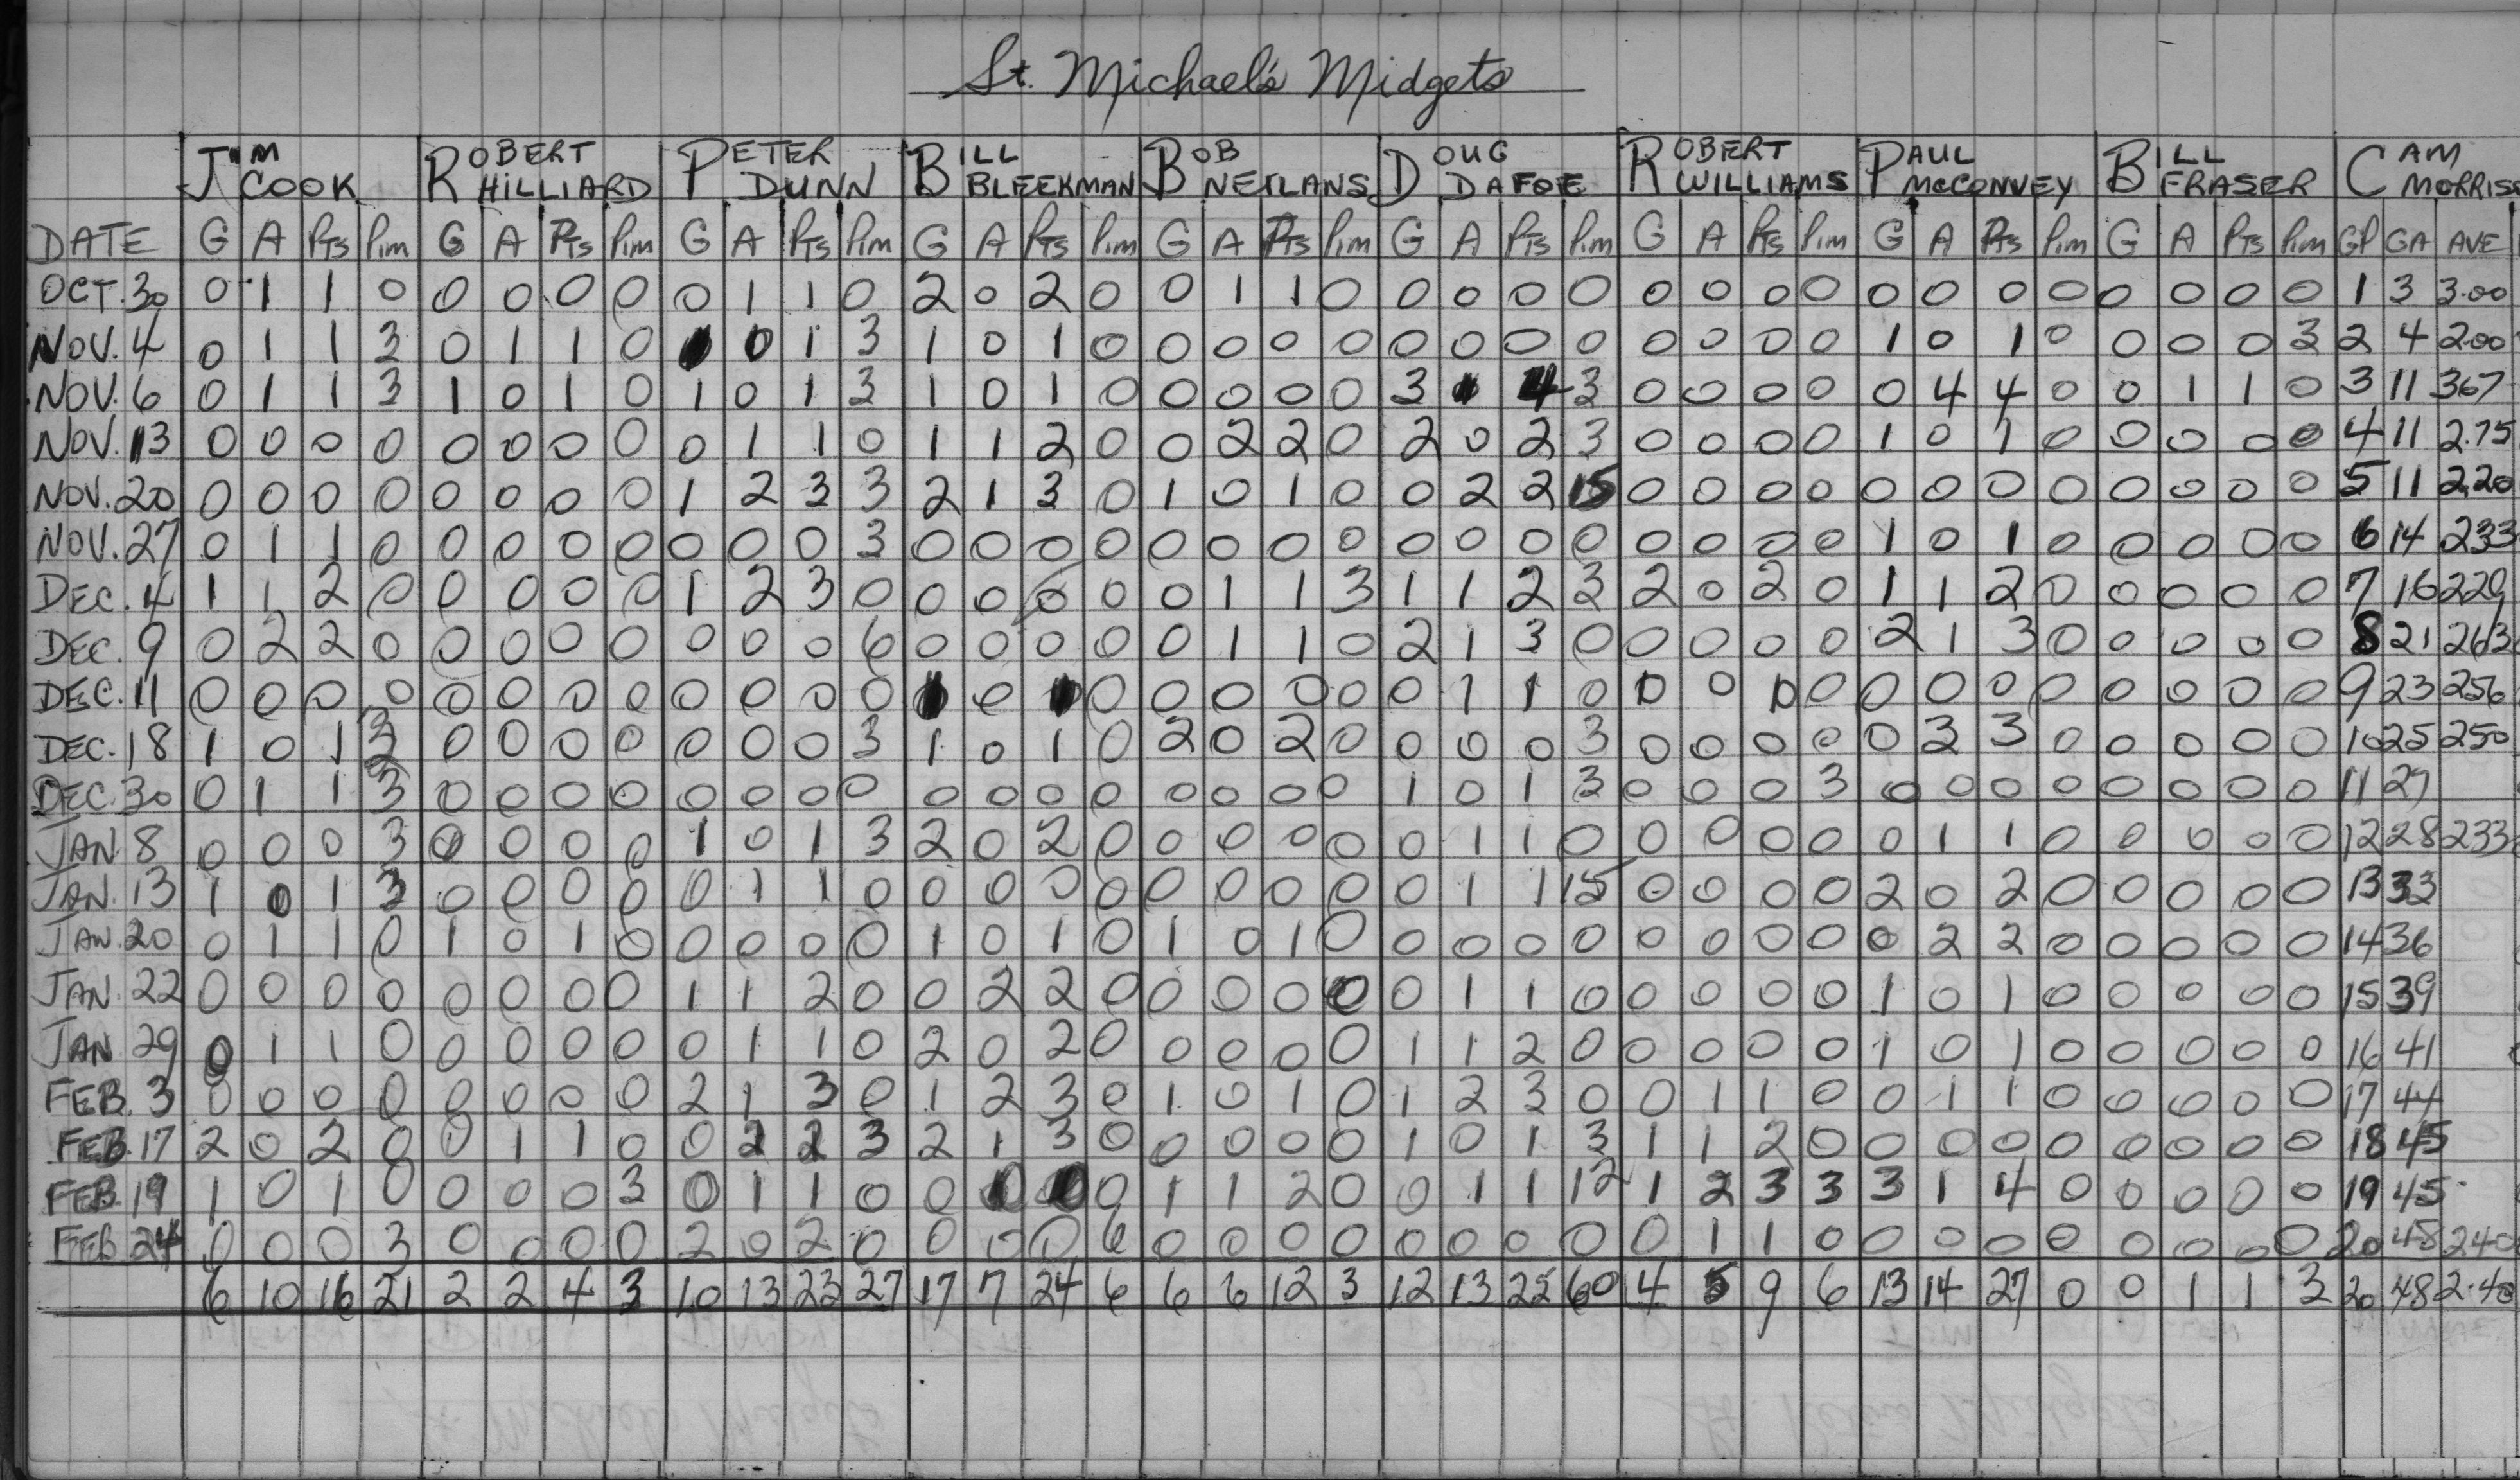 St. Michael's Midgets
JIM COOK ROBERT HILLIARD PETER DUNN BILL BLEEKMAN BOB NETLANS DOUG DAFOE ROBERT WILLIAMS PAUL McCONVEY BILL FRASER CAM MORRIS
DATE G A Pts Pim G A Pts Pim G A Pts Pim G A Pts Pim G A Pts Pim G A Pts Pim G A Pts Pim G A Pts Pim G A Pts Pim GP GA AVE
OCT. 30 0 1 1 0 0 0 0 0 0 1 1 0 2 0 2 0 0 1 1 0 0 0 0 0 0 0 0 0 0 0 0 0 0 0 0 0 1 3 3.00
NOV. 4 0 1 1 3 0 1 1 0 0 1 3 1 0 1 0 0 0 0 0 0 0 0 0 0 0 0 0 1 0 1 0 0 0 0 3 2 4 2.00
NOV. 6 0 1 1 3 1 0 1 0 1 0 1 3 1 0 1 0 0 0 0 0 3 1 4 3 0 0 0 0 0 4 4 0 0 1 1 0 3 11 367
NOV. 13 0 0 0 0 0 0 0 0 0 1 1 0 1 1 2 0 0 2 2 0 2 0 2 3 0 0 0 0 1 0 1 0 0 0 0 0 4 11 2.75
NOV. 20 0 0 0 0 0 0 0 0 1 2 3 3 2 1 3 0 1 0 1 0 0 2 2 15 0 0 0 0 0 0 0 0 0 0 0 0 5 11 2.20
NOV. 27 0 1 1 0 0 0 0 0 0 0 0 3 0 0 0 0 0 0 0 0 0 0 0 0 0 0 0 0 1 0 1 0 0 0 0 0 6 14 233
DEC. 4 1 1 2 0 0 0 0 0 1 2 3 0 0 0 0 0 0 1 1 3 1 1 2 3 2 0 2 0 1 1 2 0 0 0 0 0 7 16 229
DEC. 9 0 2 2 0 0 0 0 0 0 0 0 6 0 0 0 0 0 1 1 0 2 1 3 0 0 0 0 0 2 1 3 0 0 0 0 0 8 21 263
DEC. 11 0 0 0 0 0 0 0 0 0 0 0 0 0 0 0 0 0 0 0 1 1 0 0 0 0 0 0 0 0 0 0 0 0 9 23 256
DEC. 18 1 0 1 3 0 0 0 0 0 0 0 3 1 0 1 0 2 0 2 0 0 0 0 3 0 0 0 0 0 3 3 0 0 0 0 0 10 25 250
DEC. 30 0 1 1 3 0 0 0 0 0 0 0 0 0 0 0 0 0 0 0 0 1 0 1 3 0 0 0 3 0 0 0 0 0 0 0 0 11 27
JAN. 8 0 0 0 3 0 0 0 0 1 0 1 3 2 0 2 0 0 0 0 0 0 1 1 0 0 0 0 0 0 1 1 0 0 0 0 0 12 28 233
JAN. 13 1 0 1 3 0 0 0 0 0 1 1 0 0 0 0 0 0 0 0 0 0 1 1 15 0 0 0 0 2 0 2 0 0 0 0 0 13 33
JAN. 20 0 1 1 0 1 0 1 0 0 0 0 0 1 0 1 0 1 0 1 0 0 0 0 0 0 0 0 0 0 2 2 0 0 0 0 0 14 36
JAN. 22 0 0 0 0 0 0 0 0 1 1 2 0 0 2 2 0 0 0 0 0 0 1 1 0 0 0 0 0 1 0 1 0 0 0 0 0 15 39
JAN 29 0 1 1 0 0 0 0 0 0 1 1 0 2 0 2 0 0 0 0 0 1 1 2 0 0 0 0 0 1 0 1 0 0 0 0 0 16 41
FEB. 3 0 0 0 0 0 0 0 0 2 1 3 0 1 2 3 0 1 0 1 0 1 2 3 0 0 1 1 0 0 1 1 0 0 0 0 0 17 44
FEB. 17 2 0 2 0 0 1 1 0 0 2 2 3 2 1 3 0 0 0 0 0 1 0 1 3 1 1 2 0 0 0 0 0 0 0 0 0 18 45
FEB. 19 1 0 1 0 0 0 0 3 0 1 1 0 0 0 1 1 2 0 0 1 1 12 1 2 3 3 3 1 4 0 0 0 0 0 19 45
FEB. 24 0 0 0 3 0 0 0 0 2 0 2 0 0 0 0 6 0 0 0 0 0 0 0 0 0 1 1 0 0 0 0 0 0 0 0 0 20 48 240
6 10 16 21 2 2 4 3 10 13 23 27 17 7 24 6 6 6 12 3 12 13 25 60 4 5 9 6 13 14 27 0 0 1 1 3 20 48 2.40